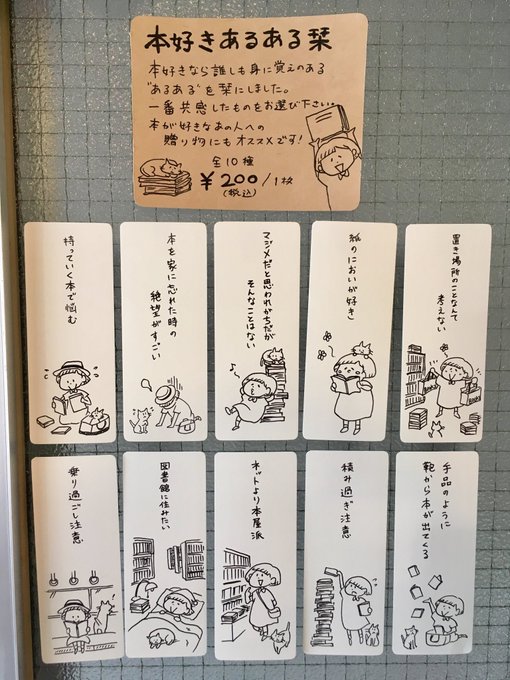 本好きあるある栞
本好きなら誰しも身に覚えのある
"あるある"を栞にしました。
一番共感したものをお選び下さい。
本が好きなあの人への
贈り物にもオススメです!
全10種
¥200/1枚
(税込)
置き場所のことなんて
考えない
紙のにおいが好き
マジメだと思われがちだが
そんなことはない
本を家に忘れた時の
絶望がすごい
持っていく本で悩む
手品のように
鞄から本が出てくる
積み過ぎ注意
ネットより本屋派
図書館に住みたい
乗り過ごし注意